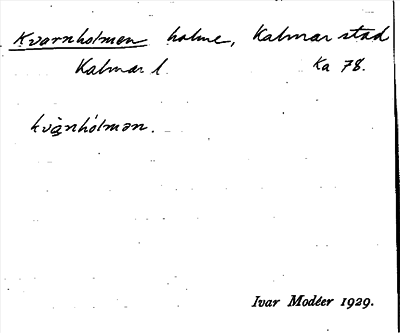 Kvarnholmen holme, Kalmar stad
Kalmar l. Ka 78.
kvà̱nhólmən.
Ivar Modéer 1929.